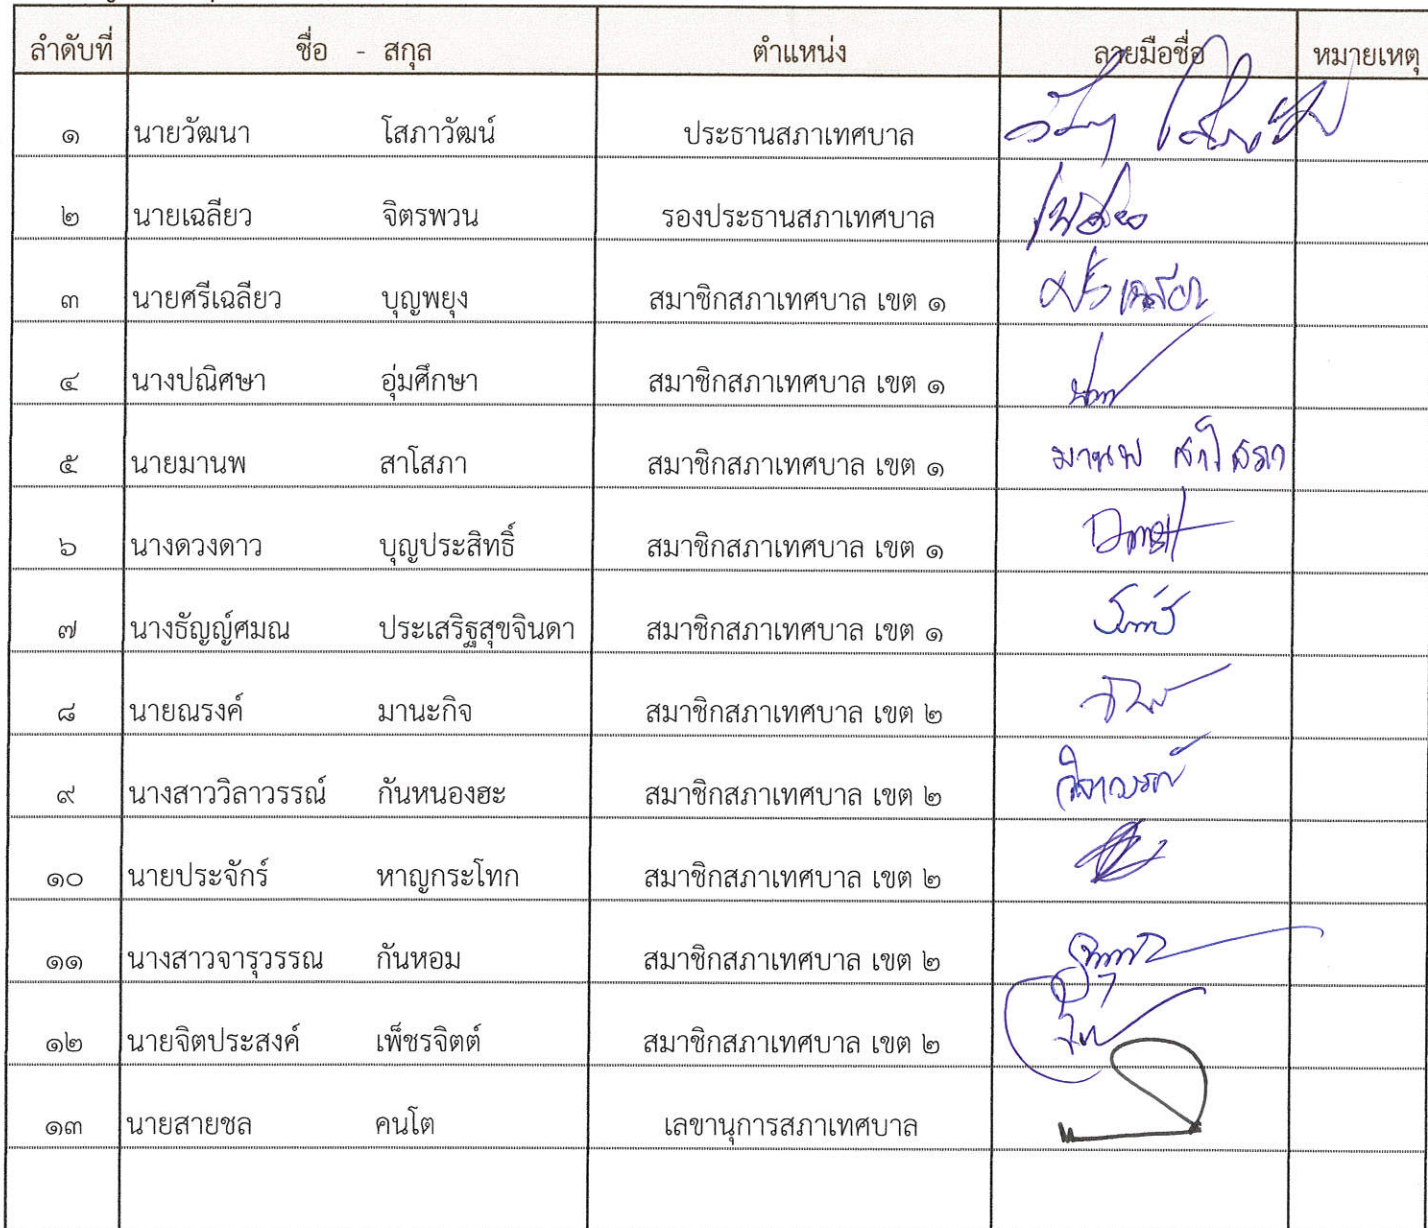 ลำดับที่ ชื่อ - สกุล ตำแหน่ง ลายมือชื่อ หมายเหตุ
๑ นายวัฒนา โสภาวัฒน์ ประธานสภาเทศบาล
๒ นายเฉลียว จิตรพวน รองประธานสภาเทศบาล
๓ นายศรีเฉลียว บุญพยุง สมาชิกสภาเทศบาล เขต ๑ ศรีเฉลียว
๔ นางปณิศษา อุ่มศึกษา สมาชิกสภาเทศบาล เขต ๑
๕ นายมานพ สาโสภา สมาชิกสภาเทศบาล เขต ๑ มานพ สาโสภา
๖ นางดวงดาว บุญประสิทธิ์ สมาชิกสภาเทศบาล เขต ๑
๗ นางธัญญ์ศมณ ประเสริฐสุขจินดา สมาชิกสภาเทศบาล เขต ๑
๘ นายณรงค์ มานะกิจ สมาชิกสภาเทศบาล เขต ๒
๙ นางสาววิลาวรรณ์ กันหนองฮะ สมาชิกสภาเทศบาล เขต ๒ วิลาวรรณ์
๑๐ นายประจักร์ หาญกระโทก สมาชิกสภาเทศบาล เขต ๒
๑๑ นางสาวจารุวรรณ กันหอม สมาชิกสภาเทศบาล เขต ๒
๑๒ นายจิตประสงค์ เพ็ชรจิตต์ สมาชิกสภาเทศบาล เขต ๒
๑๓ นายสายชล คนโต เลขานุการสภาเทศบาล